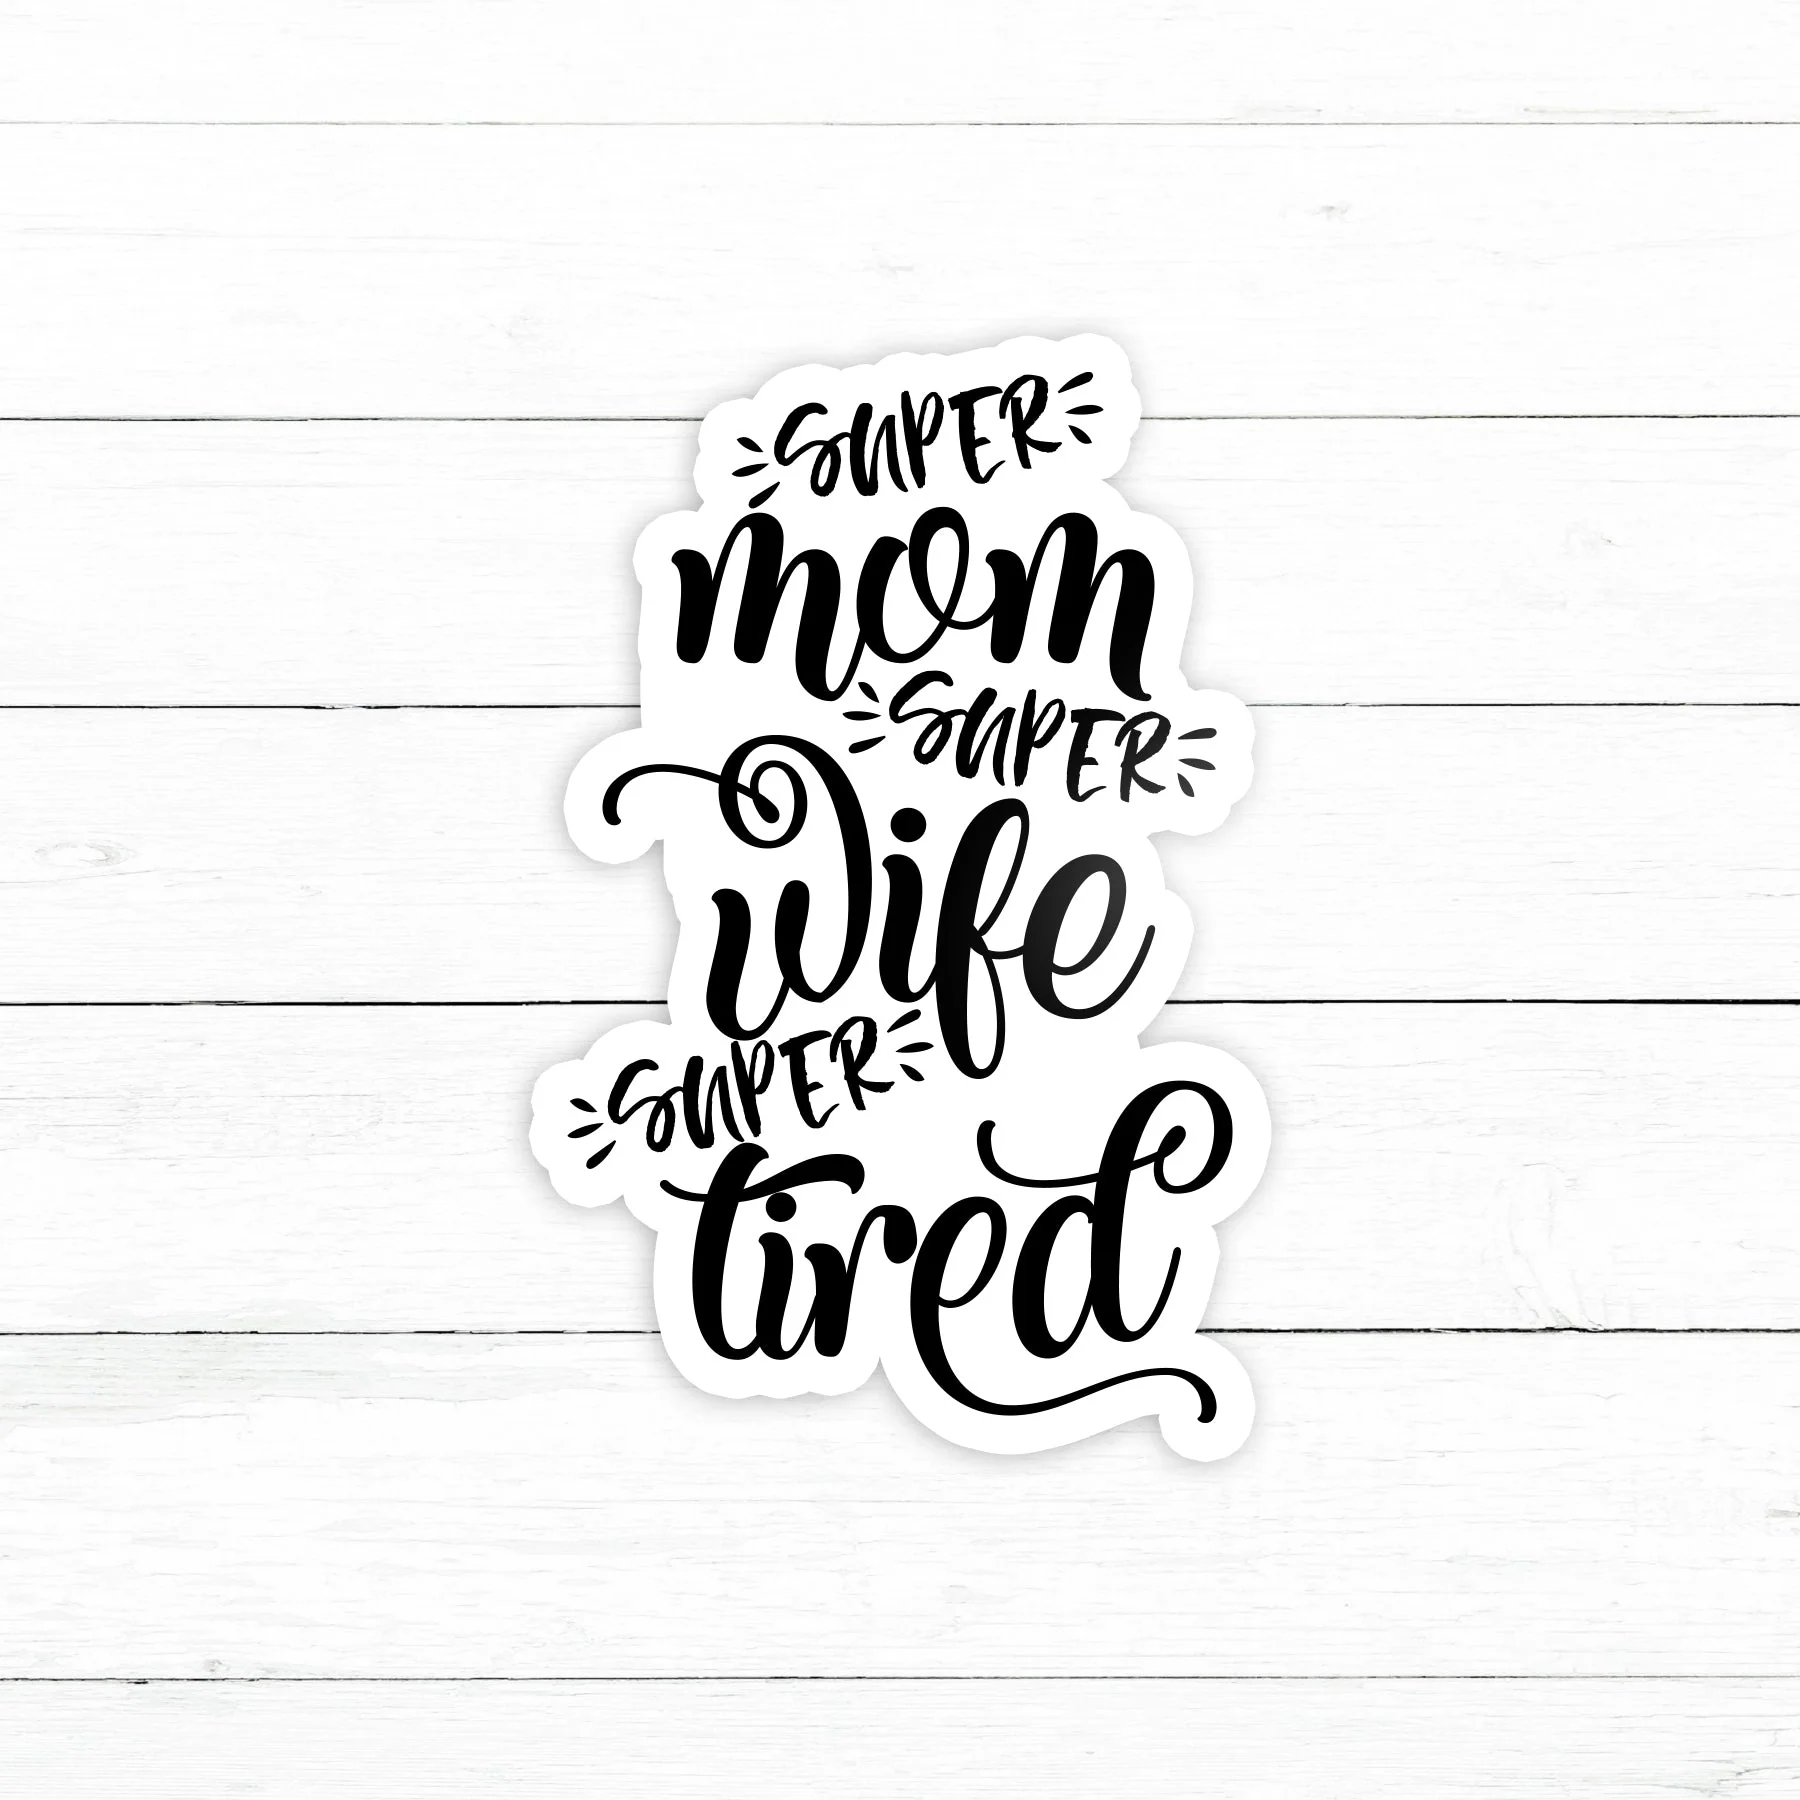 SUPER
mom
SUPER
wife
SUPER
tired